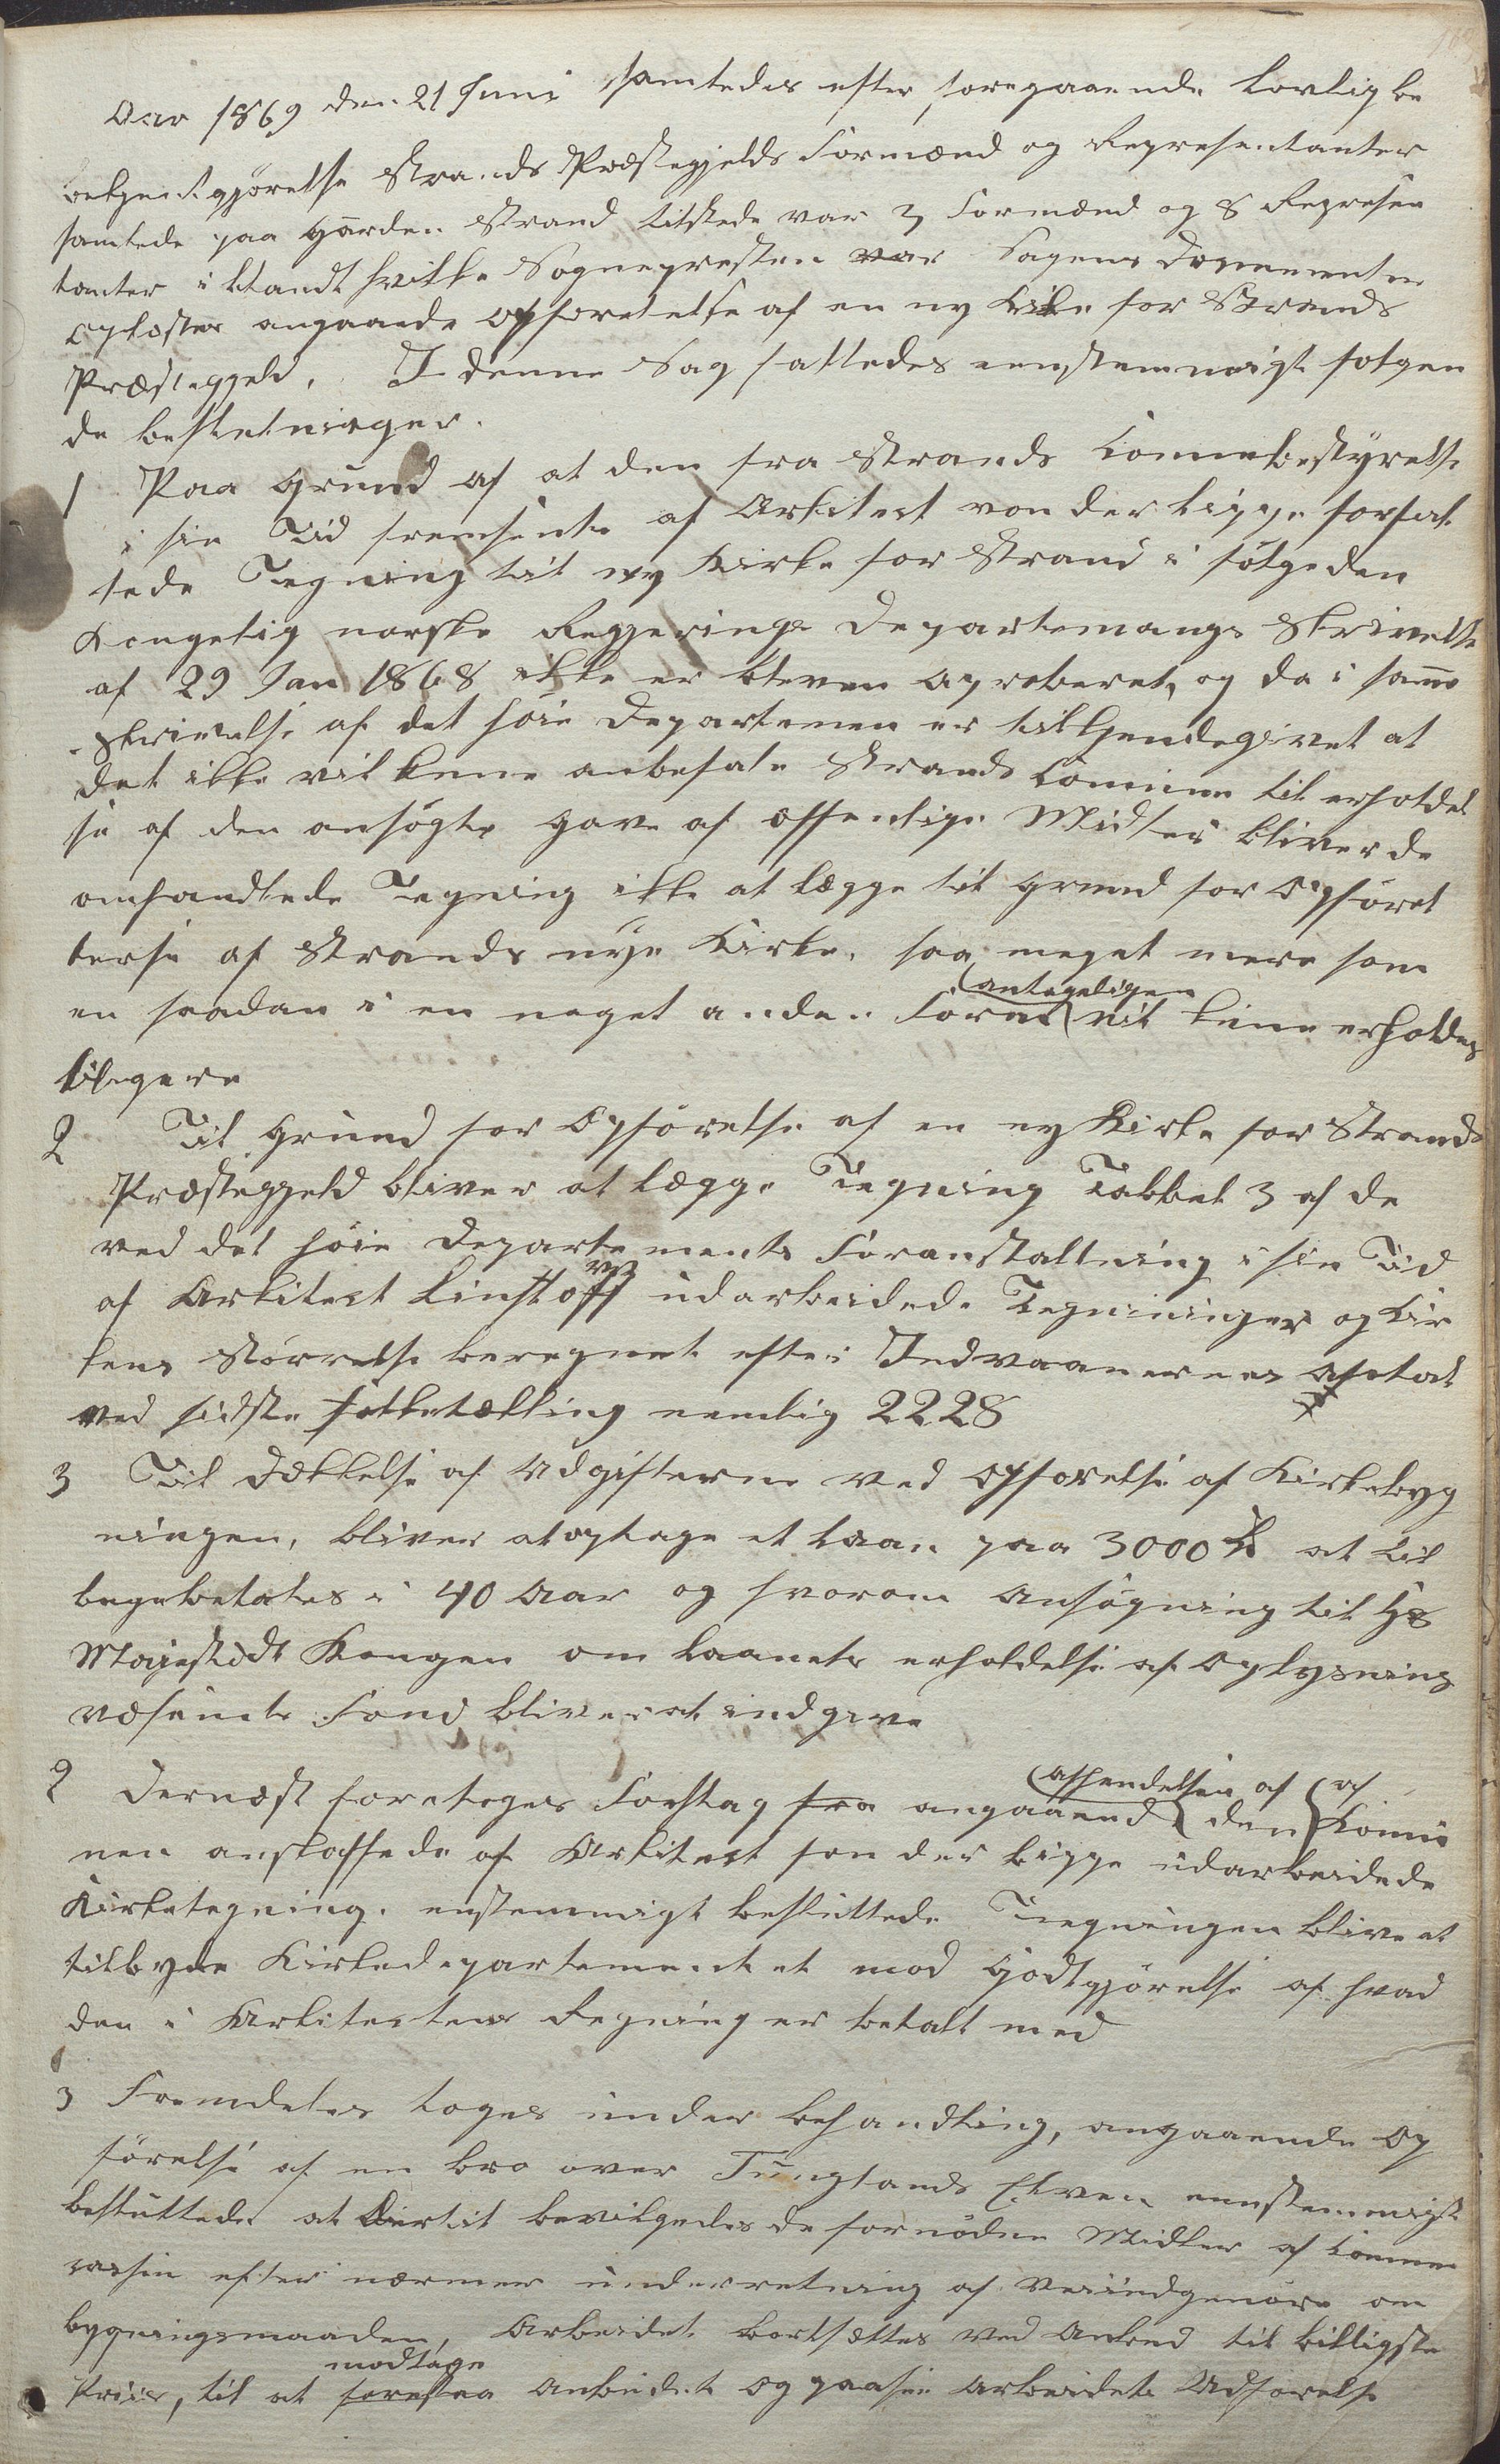 Aar 1869 den 21 Juni samledes efter foregaaende lovlig be
bekjendtgjørelse Strands Præstegjelds Formænd og Representanter
samlede paa Gaarden Strand tilstede var 3 Formænd og 8 Represen
tanter i blandt hvilke Sognepresten var Sagens Documenter
oplæster angaaende Opførelse af en ny Kirke for Strands
Præstegjeld. I denne Sag fattedes eenstemmigt følgen
de beslutninger.
1 Paa Grund af at den fra Strands Communebestyrelse
i sin Tid fremsente af Arkitect von der Lippe forfat
tede Tegning til ny Kirke for Strand i følge den
Kongelig norske Regjerings Departemangs Skrivelse
af 29 Jan 1868 ikke er bleven aproberet, og da i samme
skrivelse af det høie Departemen er tilkjendegivet at
det ikke vil kune anbefale Strands Comune til erholdel
se af den ansøgte Gave af offenlige Midler bliver de
omhandlede Tegning ikke at lægge til Grund for Opførel
lerse af Strands nye Kirke, saa meget mere som
antageligen
en saadan i en noget anden Form vil kune erholdes
biligere
2 Til Grund for Opførelse af en ny Kirke for Strands
Præstegjeld bliver at lægge Tegning Tabbel 3 af de
ved det høie Departements Foranstaltning i sin Tid
af Arkitect Linstoff udarbeidede Tegninger og Kir
kens Størrelse beregnet efter Indvaanernes Antal
ved sidste Folketælling nemlig 2228
3 Til Dækkelse af Udgifterne ved Opførelse af Kirkebyg
ningen, bliver at optage et Laan paa 3000 at til
bagebetales i 40 Aar og hvorom Ansøgning til Hs
Majestædt Kongen om Laanets erholdelse af Oplysnings
væsenets Fond bliver at indgive
2 Dernæst foretoges Forslag fra angaaende
afhendelsen af den af Komu
nen anskaffede af Arkitect fon der Lippe udarbeidede
Kirketegning. enstemmigt besluttede Tegningen blive at
tilbyde Kirkedepartementet mod Godtgjørelse af hvad
den i Arkitectens Regning er betalt med
3 Fremdeles toges under behandling, angaaende Op
førelse af en bro over Tunglands Elven eenstemmigt
besluttedes at Dertil bevilgedes de fornødne Midler af Commu
casin efter nærmer underretning af Veiindgeniøre om
bygningsmaaden, Arbeidet bortsættes ved Anbud til billigste
modtage
Priis, til at forestaa Anbudet og paase Arbeidets Udførelse